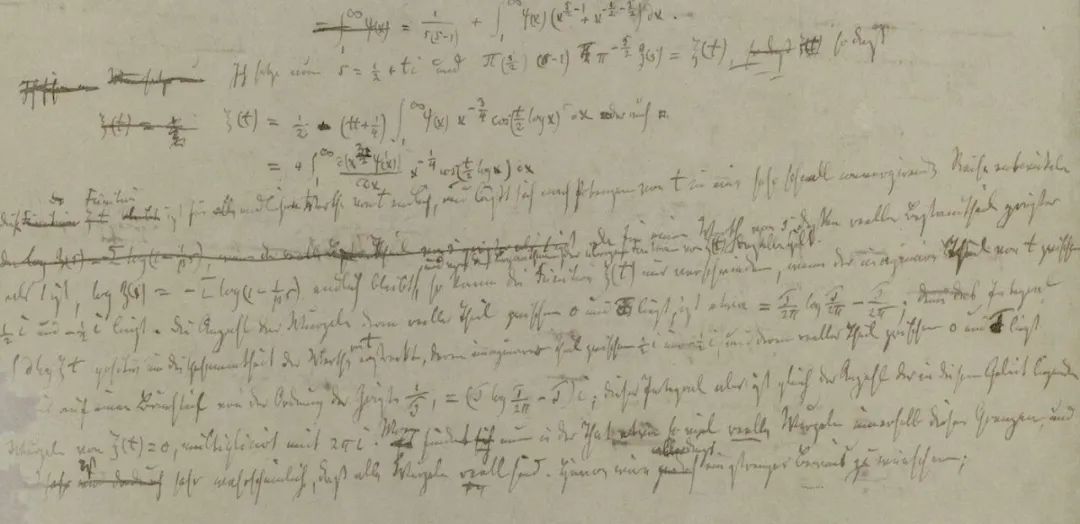 = ∫₁^∞ ψ(x) = 1/(s(s-1)) + ∫₁^∞ ψ(x) (x^{s/2-1} + x^{-s/2-1/2}) dx.
Ich setze nun s = ½ + ti und Π(s/2) (s-1) π^{-s/2} ζ(s) = ξ(t), so daß
ξ(t) = ½ - (tt+¼) ∫₁^∞ ψ(x) x^{-3/4} cos(t/2 log x) dx oder auch
= 4 ∫₁^∞ d(x^{3/2} ψ'(x))/dx x^{-1/4} cos(t/2 log x) dx
Diese Function ist für alle endlichen Werthe von t endlich, und läßt sich nach Potenzen von tt in eine sehr schnell convergirende Reihe entwickeln
Da für einen Werth von s, dessen reeller Bestandtheil größer
als 1 ist, log ζ(s) = - Σ log(1 - p^{-s}) endlich bleibt, und von den Logarithmen der übrigen Factoren von ξ(t) dasselbe gilt, so kann die Function ξ(t) nur verschwinden, wenn der imaginäre Theil von t zwischen
½ i und -½ i liegt. Die Anzahl der Wurzeln deren reeller Theil zwischen 0 und T liegt, ist etwa = T/2π log T/2π - T/2π; denn das Integral
∫ d log ξ t positiv um die Gesammtheit der Werthe von t erstreckt, deren imaginärer Theil zwischen ½ i und -½ i, und deren reeller Theil zwischen 0 und T liegt
ist bis auf einen Bruchtheil von der Ordnung der Größe 1/T, = (T log T/2π - T) i; dieses Integral aber ist gleich der Anzahl der in diesem Gebiet liegenden
Wurzeln von ξ(t) = 0, multiplicirt mit 2πi. Man findet nun in der That etwa so viel reelle Wurzeln innerhalb dieser Grenzen, und
es ist sehr wahrscheinlich, daß alle Wurzeln reell sind. Hievon wäre allerdings ein strenger Beweis zu wünschen;